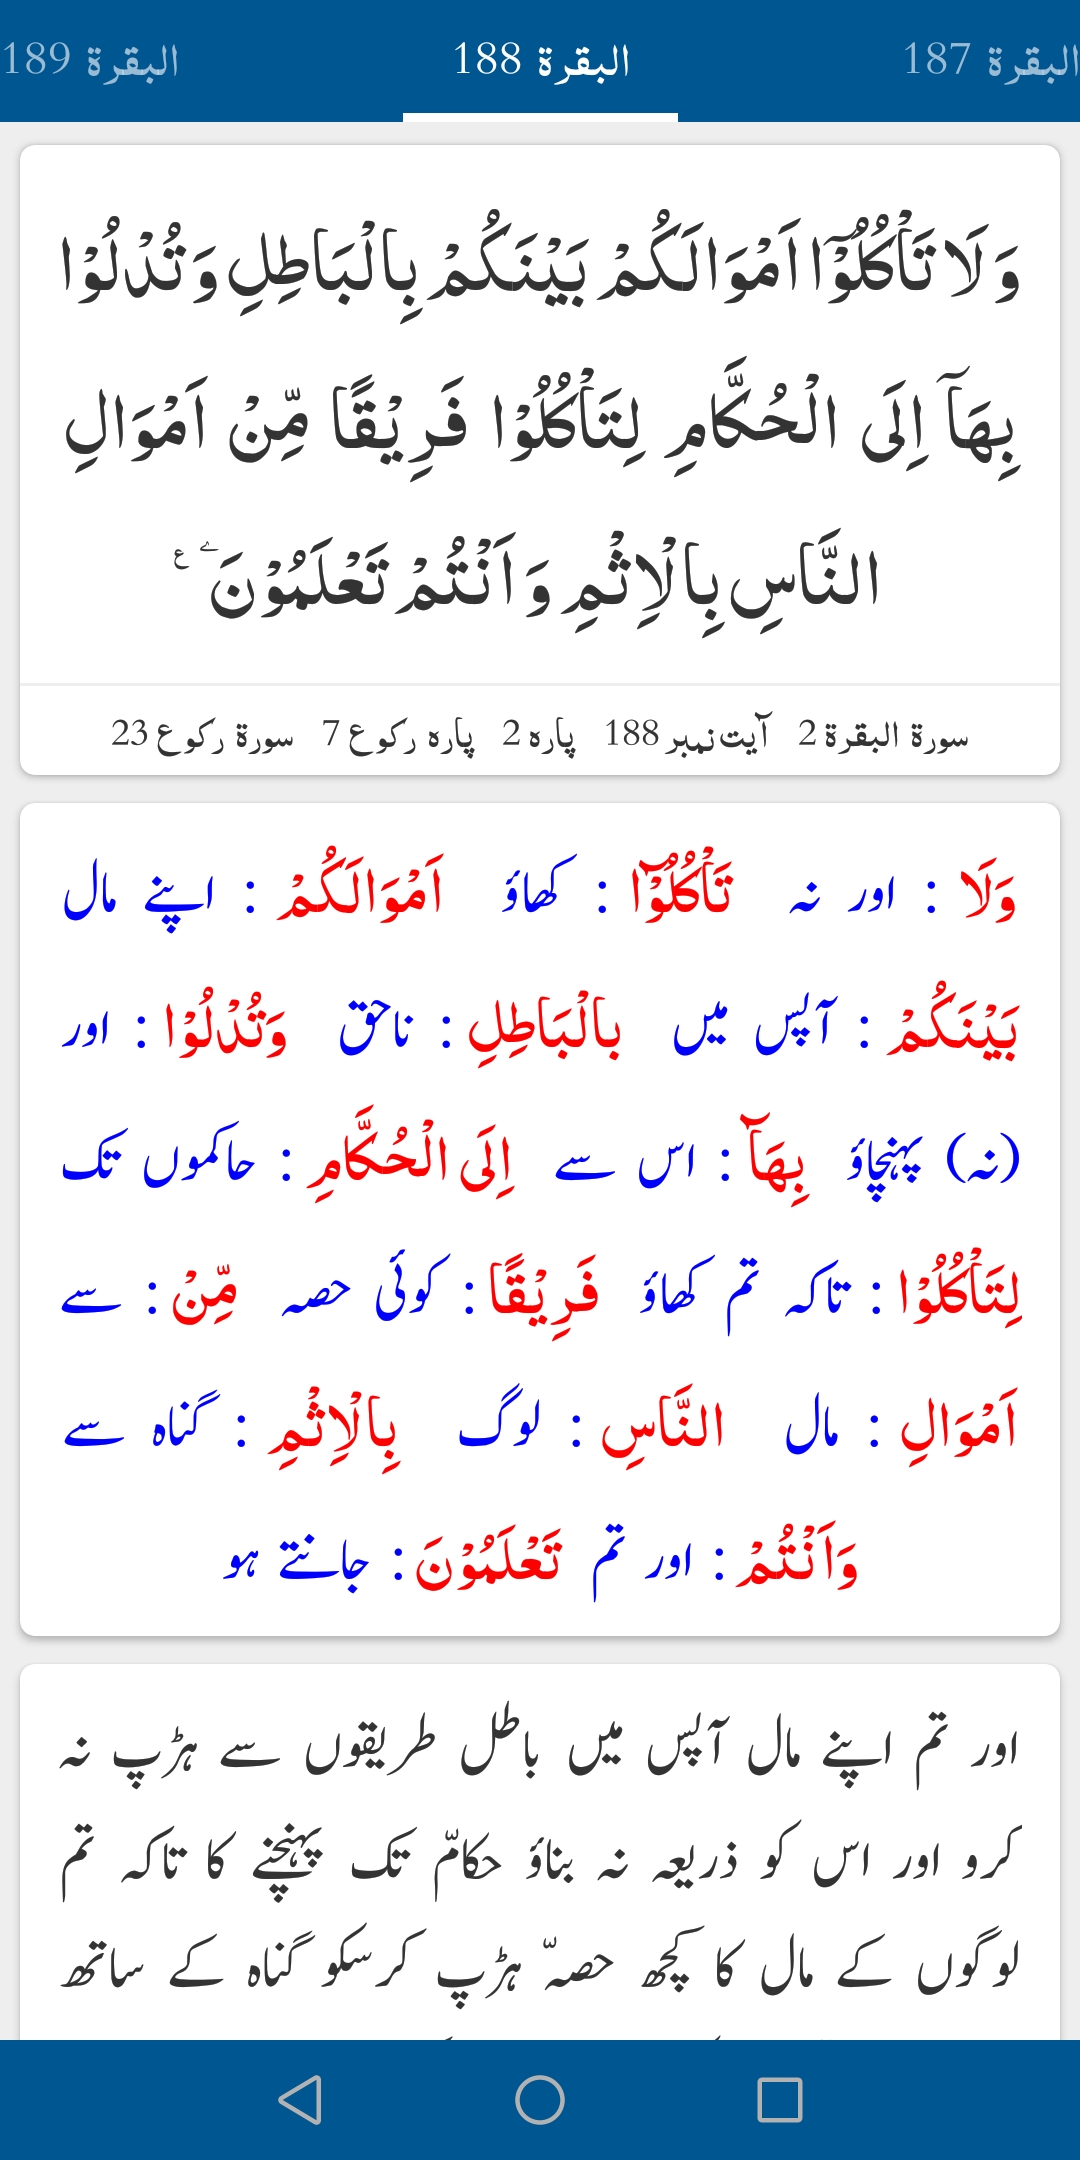 البقرة 187 البقرة 188 البقرة 189
وَلَا تَاْكُلُوْٓا اَمْوَالَكُمْ بَيْنَكُمْ بِالْبَاطِلِ وَتُدْلُوْا
بِهَآ اِلَى الْحُكَّامِ لِتَاْكُلُوْا فَرِيْقًا مِّنْ اَمْوَالِ
النَّاسِ بِالْاِثْمِ وَ اَنْتُمْ تَعْلَمُوْنَ ۧ
سورة البقرة 2 آیت نمبر 188 پاره 2 پاره رکوع 7 سورة رکوع 23
وَلَا : اور نہ تَاْكُلُوْٓا : کھاؤ اَمْوَالَكُمْ : اپنے مال
بَيْنَكُمْ : آپس میں بِالْبَاطِلِ : ناحق وَتُدْلُوْا : اور
(نہ) پہنچاؤ بِهَآ : اس سے اِلَى الْحُكَّامِ : حاکموں تک
لِتَاْكُلُوْا : تاکہ تم کھاؤ فَرِيْقًا : کوئی حصہ مِّنْ : سے
اَمْوَالِ : مال النَّاسِ : لوگ بِالْاِثْمِ : گناہ سے
وَاَنْتُمْ : اور تم تَعْلَمُوْنَ : جانتے ہو
اور تم اپنے مال آپس میں باطل طریقوں سے ہڑپ نہ
کرو اور اس کو ذریعہ نہ بناؤ حکامّ تک پہنچنے کا تاکہ تم
لوگوں کے مال کا کچھ حصہّ ہڑپ کرسکو گناہ کے ساتھ